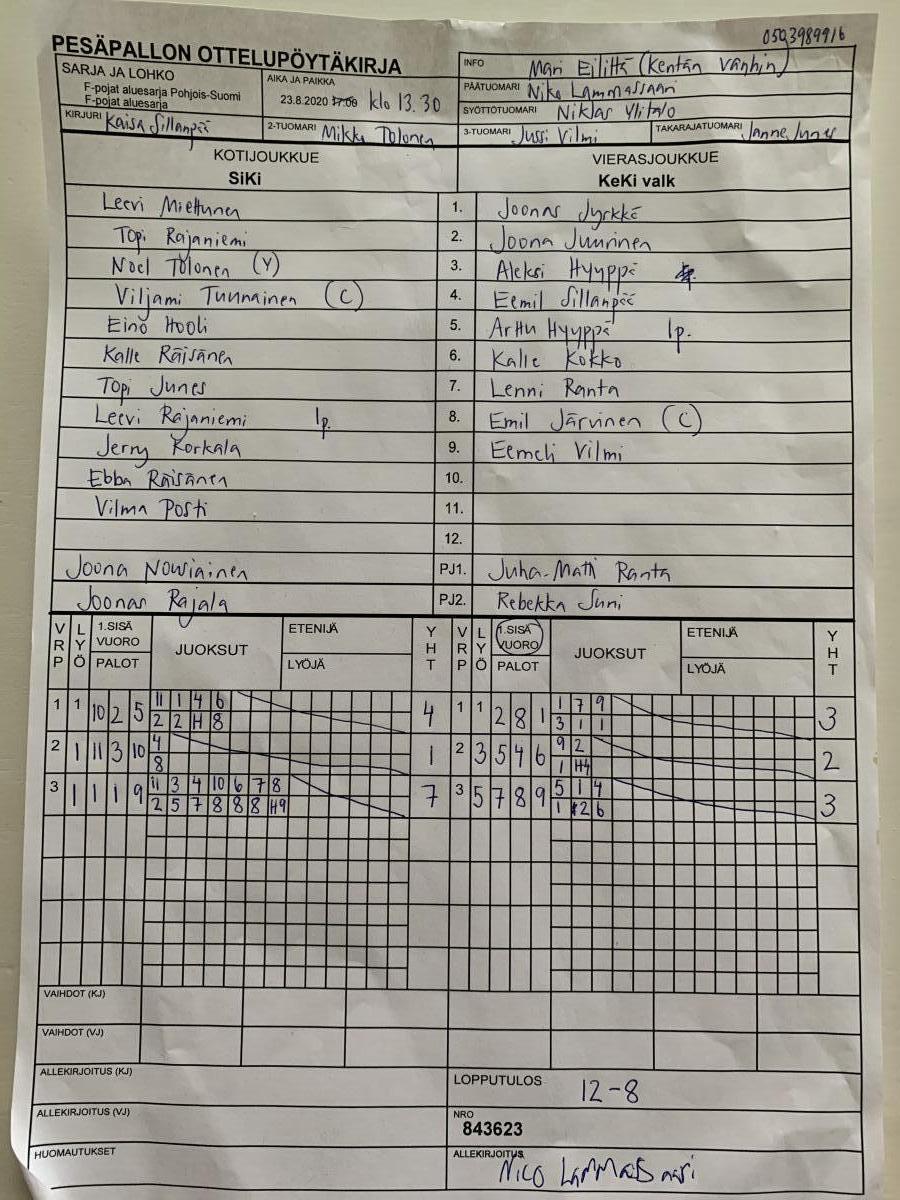 0503989916
PESÄPALLON OTTELUPÖYTÄKIRJA
SARJA JA LOHKO
F-pojat aluesarja Pohjois-Suomi
F-pojat aluesarja
AIKA JA PAIKKA
23.8.2020 17:00 klo 13.30
INFO Mari Eilittä (Kentän vanhin)
PÄÄTUOMARI Niko Lammassaari
SYÖTTÖTUOMARI Niklas Ylitalo
KIRJURI Kaisa Sillanpää
2-TUOMARI Mikko Tolonen
3-TUOMARI Jussi Vilmi
TAKARAJATUOMARI Janne Junes
KOTIJOUKKUE
SiKi
VIERASJOUKKUE
KeKi valk
Leevi Miettunen 1. Joonas Jyrkkä
Topi Rajaniemi 2. Joona Juurinen
Noel Tolonen (Y) 3. Aleksi Hyyppä
Viljami Tuunainen (C) 4. Eemil Sillanpää
Eino Hooli 5. Arttu Hyyppä lp.
Kalle Räisänen 6. Kalle Kokko
Topi Junes 7. Lenni Ranta
Leevi Rajaniemi lp. 8. Emil Järvinen (C)
Jerry Korkala 9. Eemeli Vilmi
Ebba Räisänen 10.
Vilma Posti 11.
12.
Joona Nousiainen PJ1. Juha-Matti Ranta
Joonas Rajala PJ2. Rebekka Suni
VRP LYÖ 1.SISÄ VUORO PALOT JUOKSUT ETENIJÄ LYÖJÄ YHT VRP LYÖ 1.SISÄ VUORO PALOT JUOKSUT ETENIJÄ LYÖJÄ YHT
1 1 10 2 5 11 1 4 6 4 1 1 2 8 1 1 7 9 3
2 2 H 8 3 1 1
2 1 11 3 10 4 1 2 3 5 4 6 9 2 2
8 1 H4
3 1 1 1 9 11 3 4 10 6 7 8 7 3 5 7 8 9 5 1 4 3
2 5 7 8 8 8 H9 1 2 6
VAIHDOT (KJ)
VAIHDOT (VJ)
ALLEKIRJOITUS (KJ)
LOPPUTULOS 12-8
ALLEKIRJOITUS (VJ)
NRO
843623
HUOMAUTUKSET
ALLEKIRJOITUS Nico Lammassaari